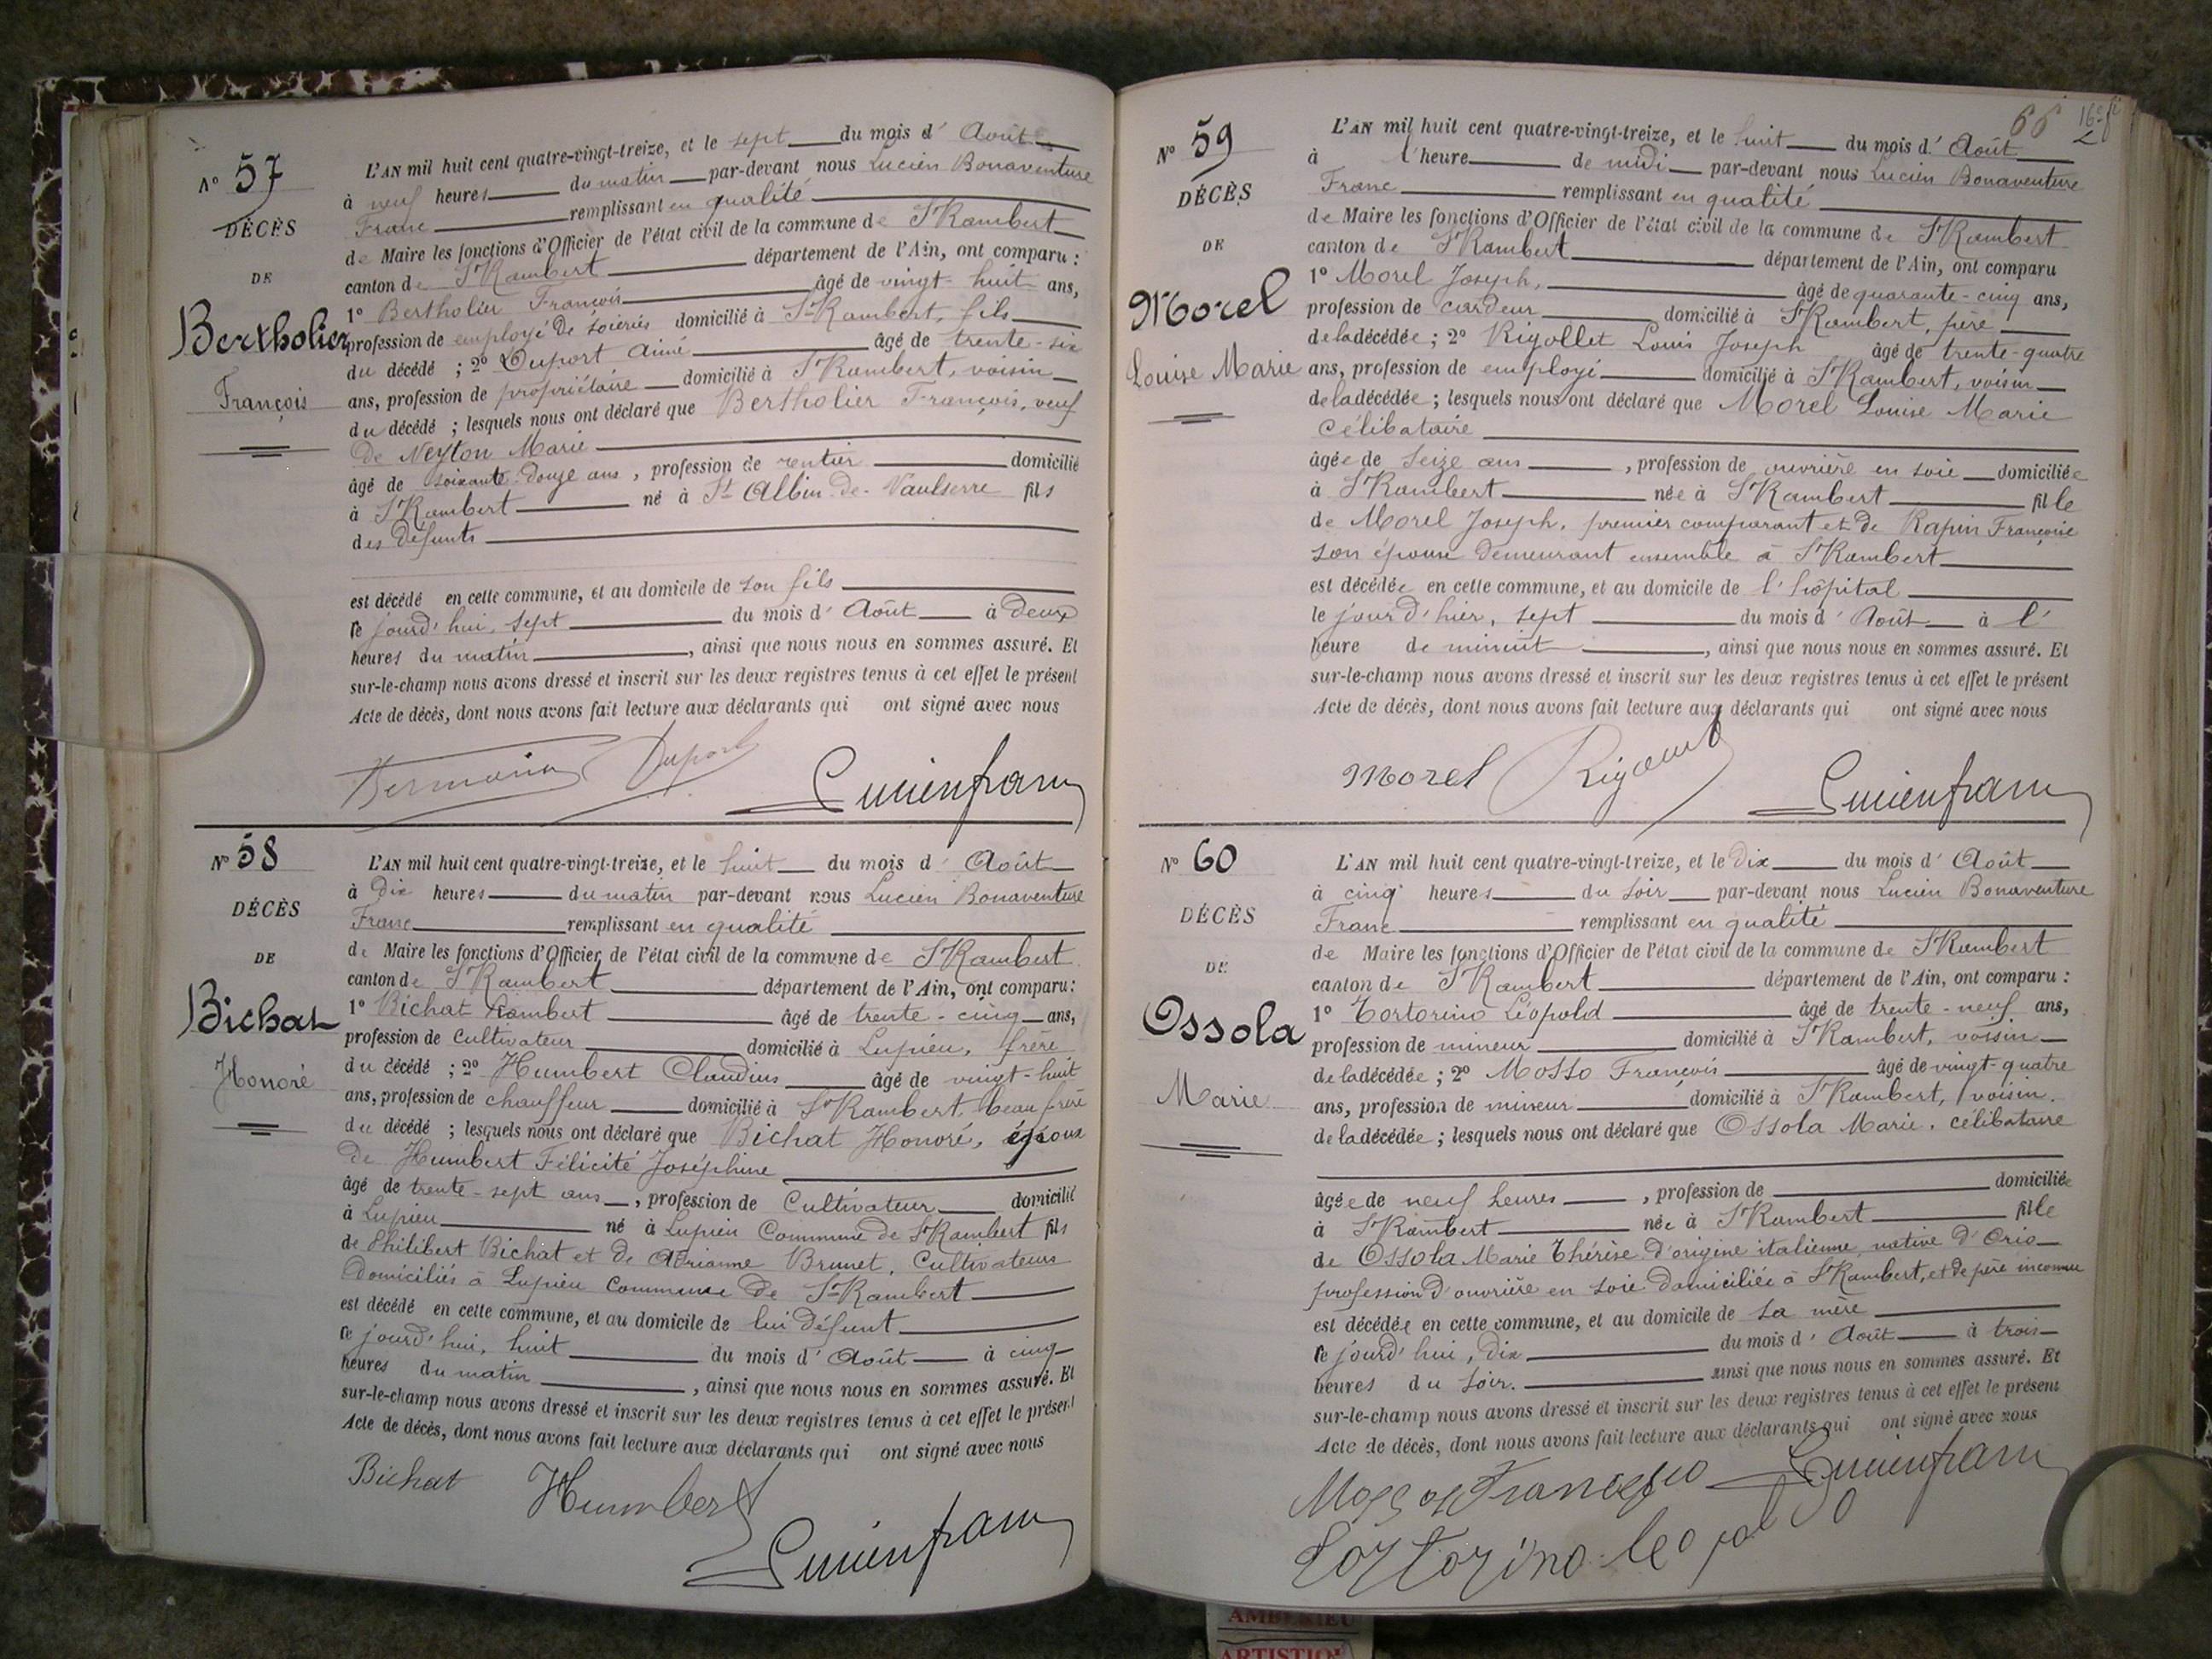 N° 57
DÉCÈS
DE
Bertholier
François
L'AN mil huit cent quatre-vingt-treize, et le sept du mois d' Août
à neuf heures du matin par-devant nous Lucien Bonaventure
Franc remplissant en qualité
de Maire les fonctions d'Officier de l'état civil de la commune de St Rambert
canton de St Rambert département de l'Ain, ont comparu :
1° Bertholier François âgé de vingt-huit ans,
profession de employé de soieries domicilié à St-Rambert, fils
du décédé ; 2° Duport Aimé âgé de trente-six
ans, profession de propriétaire domicilié à St Rambert, voisin
du décédé ; lesquels nous ont déclaré que Bertholier François, veuf
de Neyton Marie
âgé de soixante-douze ans, profession de rentier domicilié
à St Rambert né à St Albin-de-Vaulserre fils
des défunts
est décédé en cette commune, et au domicile de son fils
le jourd'hui, sept du mois d' Août à deux
heures du matin, ainsi que nous nous en sommes assuré. Et
sur-le-champ nous avons dressé et inscrit sur les deux registres tenus à cet effet le présent
Acte de décès, dont nous avons fait lecture aux déclarants qui ont signé avec nous
Duport
Lucien franc
N° 58
DÉCÈS
DE
Bichat
Honoré
L'AN mil huit cent quatre-vingt-treize, et le huit du mois d' Août
à dix heures du matin par-devant nous Lucien Bonaventure
Franc remplissant en qualité
de Maire les fonctions d'Officier de l'état civil de la commune de St Rambert
canton de St Rambert département de l'Ain, ont comparu :
1° Bichat Rambert âgé de trente-cinq ans,
profession de cultivateur domicilié à Lupieu, frère
du décédé ; 2° Humbert Claudius âgé de vingt-huit
ans, profession de chauffeur domicilié à St Rambert, beau frère
du décédé ; lesquels nous ont déclaré que Bichat Honoré, époux
de Humbert Félicité Joséphine
âgé de trente-sept ans, profession de Cultivateur domicilié
à Lupieu né à Lupieu Commune de St Rambert fils
de Philibert Bichat et de Adrianne Brunet, Cultivateurs
domiciliés à Lupieu commune de St-Rambert
est décédé en cette commune, et au domicile de lui défunt
le jourd'hui, huit du mois d' Août à cinq
heures du matin, ainsi que nous nous en sommes assuré. Et
sur-le-champ nous avons dressé et inscrit sur les deux registres tenus à cet effet le présent
Acte de décès, dont nous avons fait lecture aux déclarants qui ont signé avec nous
Bichat Humbert
Lucien franc
66
N° 59
DÉCÈS
DE
Morel
Louise Marie
L'AN mil huit cent quatre-vingt-treize, et le huit du mois d' Août
à l'heure de midi par-devant nous Lucien Bonaventure
Franc remplissant en qualité
de Maire les fonctions d'Officier de l'état civil de la commune de St Rambert
canton de St Rambert département de l'Ain, ont comparu
1° Morel Joseph, âgé de quarante-cinq ans,
profession de cardeur domicilié à St Rambert, père
de la décédée ; 2° Rigollet Louis Joseph âgé de trente-quatre
ans, profession de employé domicilié à St Rambert, voisin
de la décédée ; lesquels nous ont déclaré que Morel Louise Marie
célibataire
âgée de seize ans, profession de ouvrière en soie domiciliée
à St Rambert née à St Rambert fille
de Morel Joseph, premier comparant et de Rapin Françoise
son épouse demeurant ensemble à St Rambert
est décédée en cette commune, et au domicile de l'hôpital
le jour d'hier, sept du mois d' Août à l'
heure de minuit, ainsi que nous nous en sommes assuré. Et
sur-le-champ nous avons dressé et inscrit sur les deux registres tenus à cet effet le présent
Acte de décès, dont nous avons fait lecture aux déclarants qui ont signé avec nous
Morel
Lucien franc
N° 60
DÉCÈS
DE
Ossola
Marie
L'AN mil huit cent quatre-vingt-treize, et le dix du mois d' Août
à cinq heures du soir par-devant nous Lucien Bonaventure
Franc remplissant en qualité
de Maire les fonctions d'Officier de l'état civil de la commune de St Rambert
canton de St Rambert département de l'Ain, ont comparu :
1° Tortorino Léopold âgé de trente-neuf ans,
profession de mineur domicilié à St Rambert, voisin
de la décédée ; 2° Mosso François âgé de vingt-quatre
ans, profession de mineur domicilié à St Rambert, voisin.
de la décédée ; lesquels nous ont déclaré que Ossola Marie, célibataire
âgée de neuf heures, profession de domiciliée
à St Rambert née à St Rambert fille
de Ossola Marie Thérèse d'origine italienne, native d'Orio
profession d'ouvrière en soie domiciliée à St Rambert, et de père inconnu
est décédée en cette commune, et au domicile de sa mère
le jourd'hui, dix du mois d' Août à trois
heures du soir. ainsi que nous nous en sommes assuré. Et
sur-le-champ nous avons dressé et inscrit sur les deux registres tenus à cet effet le présent
Acte de décès, dont nous avons fait lecture aux déclarants qui ont signé avec nous
Lucien franc
Tortorino leopoldo
AMBERIEU